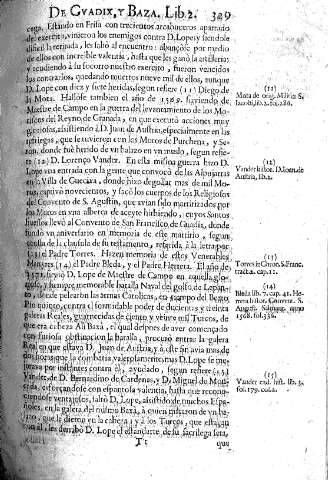 DE GVADIX, Y BAZA. Lib. 2. 329
cega. Estando en Frisa con trecientos arcabuceros apartado
del exercito, vinieron los enemigos contra D. Lope y siendole
dificil la retirada, les salió al encuentro: abançose por medio
de ellos con increible valentia, hasta que les ganò la artilleria
y acudiendo à su socorro nuestro exercito, fueron vencidos
los contrarios, quedando muertos nueve mil de ellos, aunque
D. Lope con diez y siete heridas, segun refiere (11) Diego de
la Mota. Hallose tambien el año de 1569. sirviendo de
Maestre de Campo en la guerra del levantamiento de los Mo-
riscos del Reyno de Granada, en que executò acciones muy
D. Juan de Austria, especialmente en las
que se tuvieron con los Moros de Purchena, y Se-
ron, donde fue herido de un balazo en un muslo, segun refie-
re (12) D. Lorenço Vander. En esta misma guerra hizo D.
Lope una entrada con la gente que convocò de las Alpujarras
en la Villa de Guecija, donde hizo degollar mas de mil Mo-
ros, cautivò novecientos, y sacò los cuerpos de los Religiosos
del Convento de S. Agustin, que avian sido martirizados por
los Moros en una alberca de aceyte hirbiendo, cuyos Santos
huesos llevò al Convento de San Francisco, de Guadix, donde
fundò un aniversario en memoria de este martirio, segun
consta de la clausula de su testamento, referida à la letra por
(13) el Padre Torres. Hazen memoria de estos Venerables
Martires (14) el Padre Bleda, y el Padre Herrera. El año de
1571. sirviò D. Lope de Maestre de Campo en aquella glo-
riosa, y siempre memorable batalla Naval del golfo de Lepan-
to, donde pelearon las armas Catolicas, en tiempo del Beato
Pio quinto, contra el formidable poder de ducientas y treinta
galeras Reales, guarnecidas de ciento y veinte mil Turcos, de
que era cabeza Ali Baxà, el qual despues de aver començado
con furiosa obstinacion la batalla, procurò entrar la galera
Real, en que estava D. Juan de Austria, y à este fin avia mas de
dos horas que la combatia valerosamente; mas D. Lope le me-
jorava por instantes contra èl, ayudado, segun refiere (15)
Vander, de D. Bernardino de Cardenas, y D. Miguel de Mon-
cada, esforçandose con española valentia, hasta que recono-
ciendose ventajosos, saltò D. Lope, asistido de muchos Espa-
ñoles, en la galera del mismo Baxà, à quien hizieron de un ba-
lazo, que le dieron en la cabeza; y à los Turcos, que estavan
con èl: derribò D. Lope el estandarte de su sacrilega seta,
T 5 que
(11)
Mota de orig. Milit. S.
Iacobi, lib. 2. fol. 286.
(12)
Vander histor. D. Ioan. de
Austria, lib. 2.
(13)
Torres in Chron. S. Franc.
tract. 2. cap. 12.
(14)
Bleda lib. 7. cap. 41. He-
rrera histor. Convent. S.
August. Salmant. anno
1568. fol. 336.
(15)
Vander ead. hist. lib. 3.
fol. 179. col. 2.